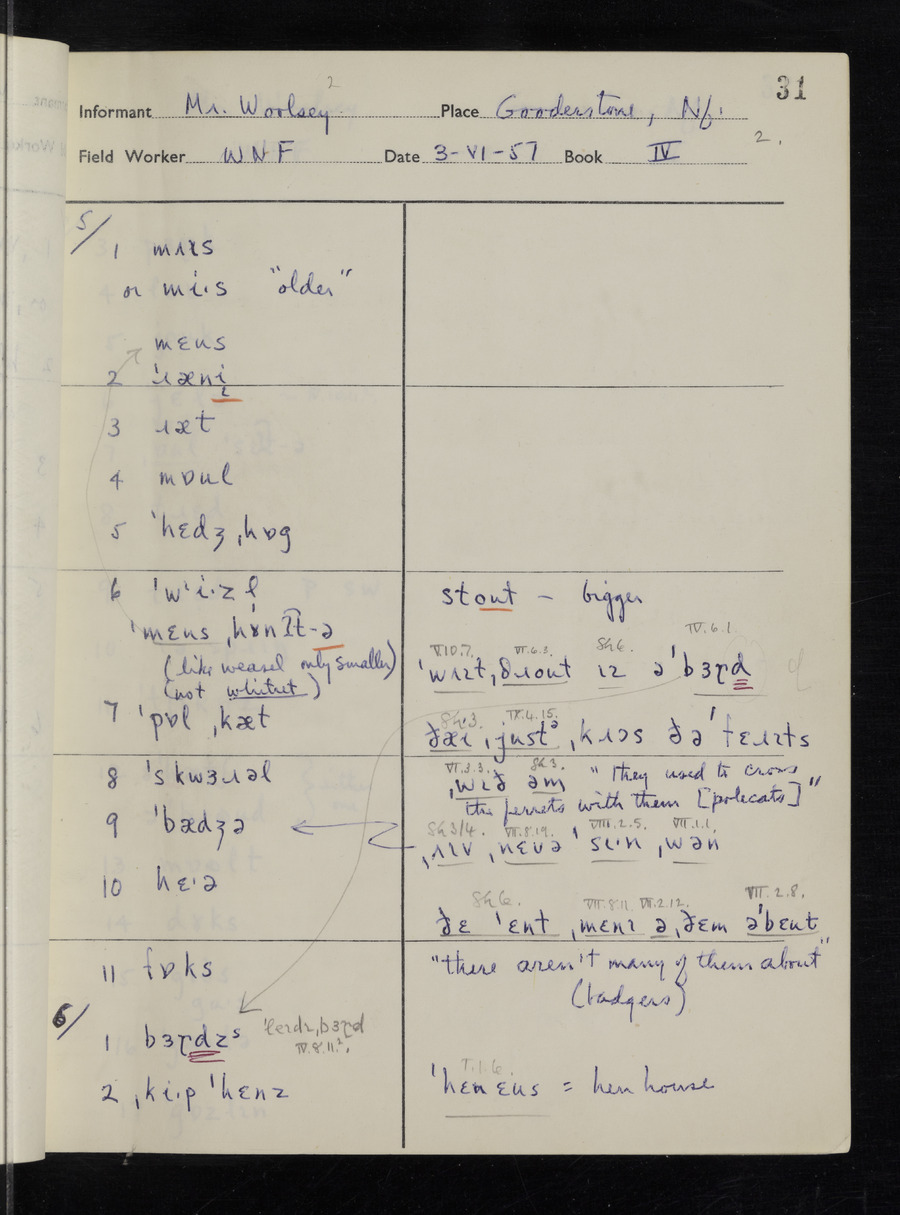 31
2
Informant Mr. Woolsey Place Gooderstone, Nf.
2.
Field Worker WNF Date 3-VI-57 Book IV
5/
1 mʌɪs
or mi·s "older"
mɛus
2 ˈɹæni
3 ɹæt
4 mɒul
5 ˈhɛdʒˌhɒg
6 ˈwi·zl
stout – bigger
ˈmɛusˌhʌnɪt-ə
(like weasel only smaller)
(not whitret)
V.10.7. VI.6.3. S&6. IV.6.1
ˈwɪɪt, ɪz əˈbɜɽd
7 ˈpɒlˌkæt
S&3. IX.4.15.
ðæi ˌjustə ˌkɹɔs ðəˈfɛɹɪts
8 ˈskwɜɹəl
VI.3.3. S&3.
ˌwɪð əm "they used to cross
the ferrets with them [polecats]"
9 ˈbædʒə
S&3/4. VII.8.19. VIII.2.5. VII.1.1.
ˌɪɪv ˌnɛvə ˈsi·n ˌwən
10 hɛ·ə
S&6. VII.8.11. VII.2.12. VII.2.8.
ðɛ ˈɛnt ˌmɛnɪ əˌðɛm əˈbɛut
11 fɒks
"there aren't many of them about"
(badgers)
6/
1 bɜɽdz s
IV.8.11².
2 ˌki·pˈhɛnz
I.1.6.
ˈhɛnɛus = hen house